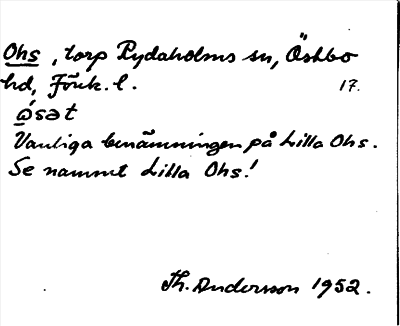 Ohs, torp Rydaholms sn, Östbo
hd, Jönk. l. 17.
ὼsət
Vanliga benämningen på Lilla Ohs.
Se namnet Lilla Ohs!
Th. Andersson 1952.